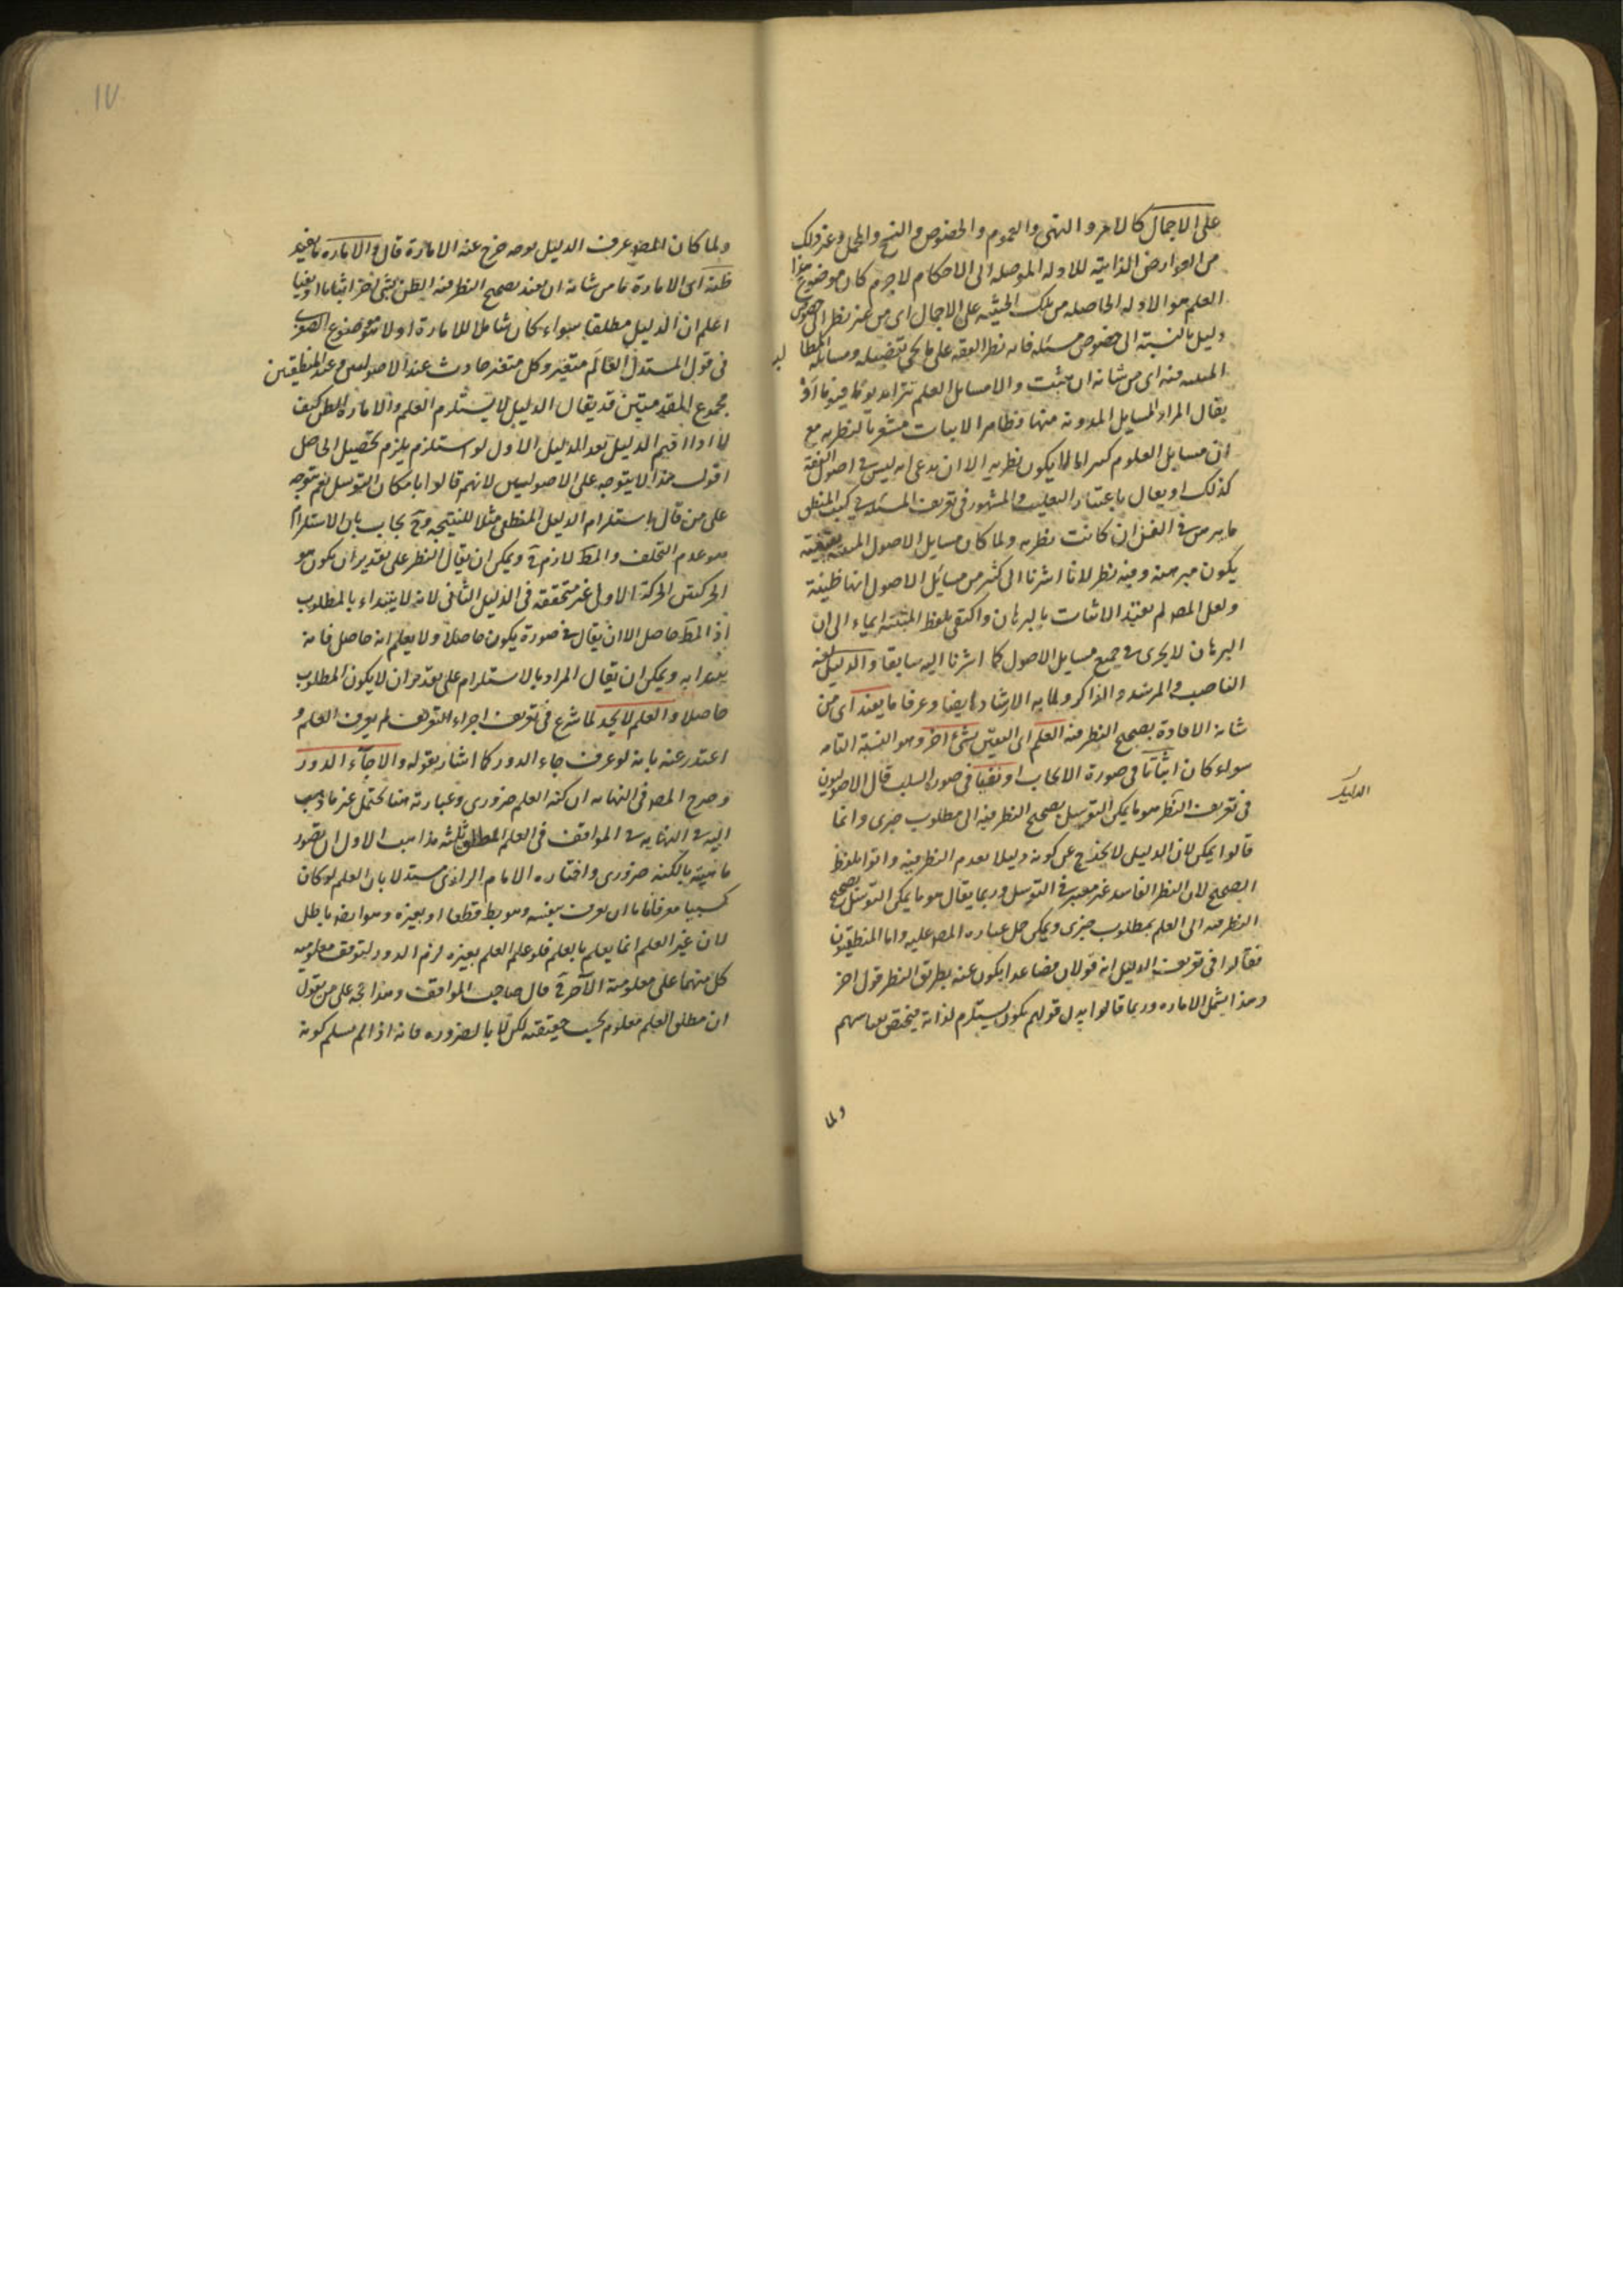 على الاجمال كالامر والنهى والعموم والخصوص والنسخ والمجمل وغير ذلك
من العوارض الذاتية للادلة الموصلة الى الاحكام لا جرم كان موضوع هذا
العلم هو الادلة الحاصلة من تلك الحيثية على الاجمال اى من غير نظر الى خصوص
دليل بالنسبة الى خصوص مسئلة فانه نظر الفقه على ما يجئ تفصيله ومسائله المطالب
المثبتة فيه اى من شانه ان يثبت والا مسائل العلم تتزايد يوما فيوما او
يقال المراد المسايل المدونة منها وظاهر الاثبات مشعر بالنظرية مع
ان مسايل العلوم كثيرا ما لا يكون نظرية الا ان يدعى انه ليس فى اصول الفقه
كذلك او يقال باعتبار التغليب والمشهور فى تعريف المسئلة فى كتب المنطق
ما يبرهن فى الفن ان كانت نظرية ولما كان مسايل الاصول
يكون مبرهنة وفيه نظر لانا اشرنا الى كثير من مسايل الاصول انها ظنية
ولعل المصـ لم يقيد الاثبات بالبرهان واكتفى بلفظ المثبتة ايماء الى ان
البرهان لا يجرى فى جميع مسايل الاصول كما اشرنا اليه سابقا والدليل لغة
الناصب والمرشد والذاكر ولما به الارشاد ايضا وعرفا ما يفيد اى من
شانه الافادة بصحيح النظر فيه العلم اى اليقين بشئ اخر وهو النسبة التامة
سواء كان اثباتا فى صورة الايجاب او نفيا فى صورة السلب قال الاصوليون
فى تعريف النظر هو ما يمكن التوسل بصحيح النظر فيه الى مطلوب خبرى وانما
قالوا يمكن لان الدليل لا يخرج عن كونه دليلا بعدم النظر فيه واتوا بلفظ
الصحيح لان النظر الفاسد غير معتبر فى التوسل وربما يقال هو ما يمكن التوسل بصحيح
النظر فيه الى العلم بمطلوب خبرى ويمكن حمل عبارة المصـ عليه واما المنطقيون
فقالوا فى تعريف الدليل انه قولان فصاعدا يكون عنه بطريق النظر قول اخر
وهذا يشمل الامارة وربما قالوا بدل قولهم يكون يستلزم لذاته فيختص بما
ولما
الدليل
١٧
ولما كان المصـ عرف الدليل بوجه خرج عنه الامارة قال والامارة ما يفيد
ظنه اى الامارة ما من شانه ان يفيد بصحيح النظر فيه الظن بشئ اخر اثباتا او نفيا
اعلم ان الدليل مطلقا سواء كان شاملا للامارة او لا هو موضوع الصغرى
فى قول المستدل العالم متغير وكل متغير حادث عند الاصوليين وعند المنطقيين
مجموع المقدمتين قد يقال الدليل لا يستلزم العلم والامارة الظن كيف
لا اذا اقيم الدليل بعد الدليل الاول لو استلزم يلزم تحصيل الحاصل
اقول هذا لا يتوجه على الاصوليين لانهم قالوا بامكان التوسل نعم يتوجه
على من قال باستلزام الدليل المنطقى مثلا للنتيجة وح يجاب بان الاستلزام
هو عدم التخلف والمط لازم ح ويمكن ان يقال النظر على تقدير ان يكون هو
الحركتين الحركة الاولى غير متحققة فى الدليل الثانى لانه لا يبتداء بالمطلوب
اذ المط حاصل الا ان يقال فى صورة يكون حاصلا ولا يعلم انه حاصل فانه
يبتدا به ويمكن ان يقال المراد بالاستلزام على تقدير ان لا يكون المطلوب
حاصلا والعلم لا يحد لما شرع فى تعريف اجزاء التعريف لم يعرف العلم و
اعتذر عنه بانه لو عرف جاء الدور كما اشار بقوله والا جاء الدور
وصرح المصـ فى النهاية ان كنه العلم ضرورى وعبارته هنا تحتمل غير ما ذهب
اليه فى النهاية فى المواقف فى العلم المطلق ثلثة مذاهب الاول ان تصور
ماهيته بالكنه ضرورى واختاره الامام الرازى مستدلا بان العلم لو كان
كسبيا معرفا فاما ان يعرف بنفسه وهو بط قطعا او بغيره وهو ايضا باطل
لان غير العلم انما يعلم بالعلم فلو علم العلم بغيره لزم الدور لتوقف معلومية
كل منهما على معلومية الآخر ح قال صاحب المواقف وهذا حجة على من يقول
ان مطلق العلم معلوم بحسب حقيقته لكن لا بالضرورة فانه اذا لم يسلم كونه